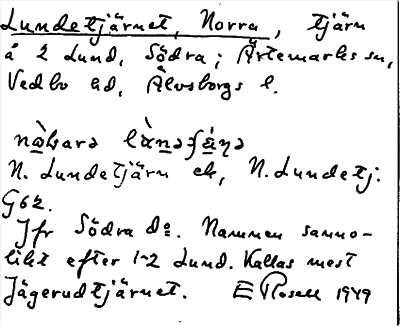 Lundetjärnet, Norra, tjärn
å 2 Lund, Södra; Ärtemarks sn,
Vedbo hd, Älvsborgs l.
N. Lundetjärn ek, N. Lundetj.
G62.
Jfr Södra do. Namnen sanno-
likt efter 1-2 Lund. Kallas mest
Jägerudtjärnet. E Rosell 1949